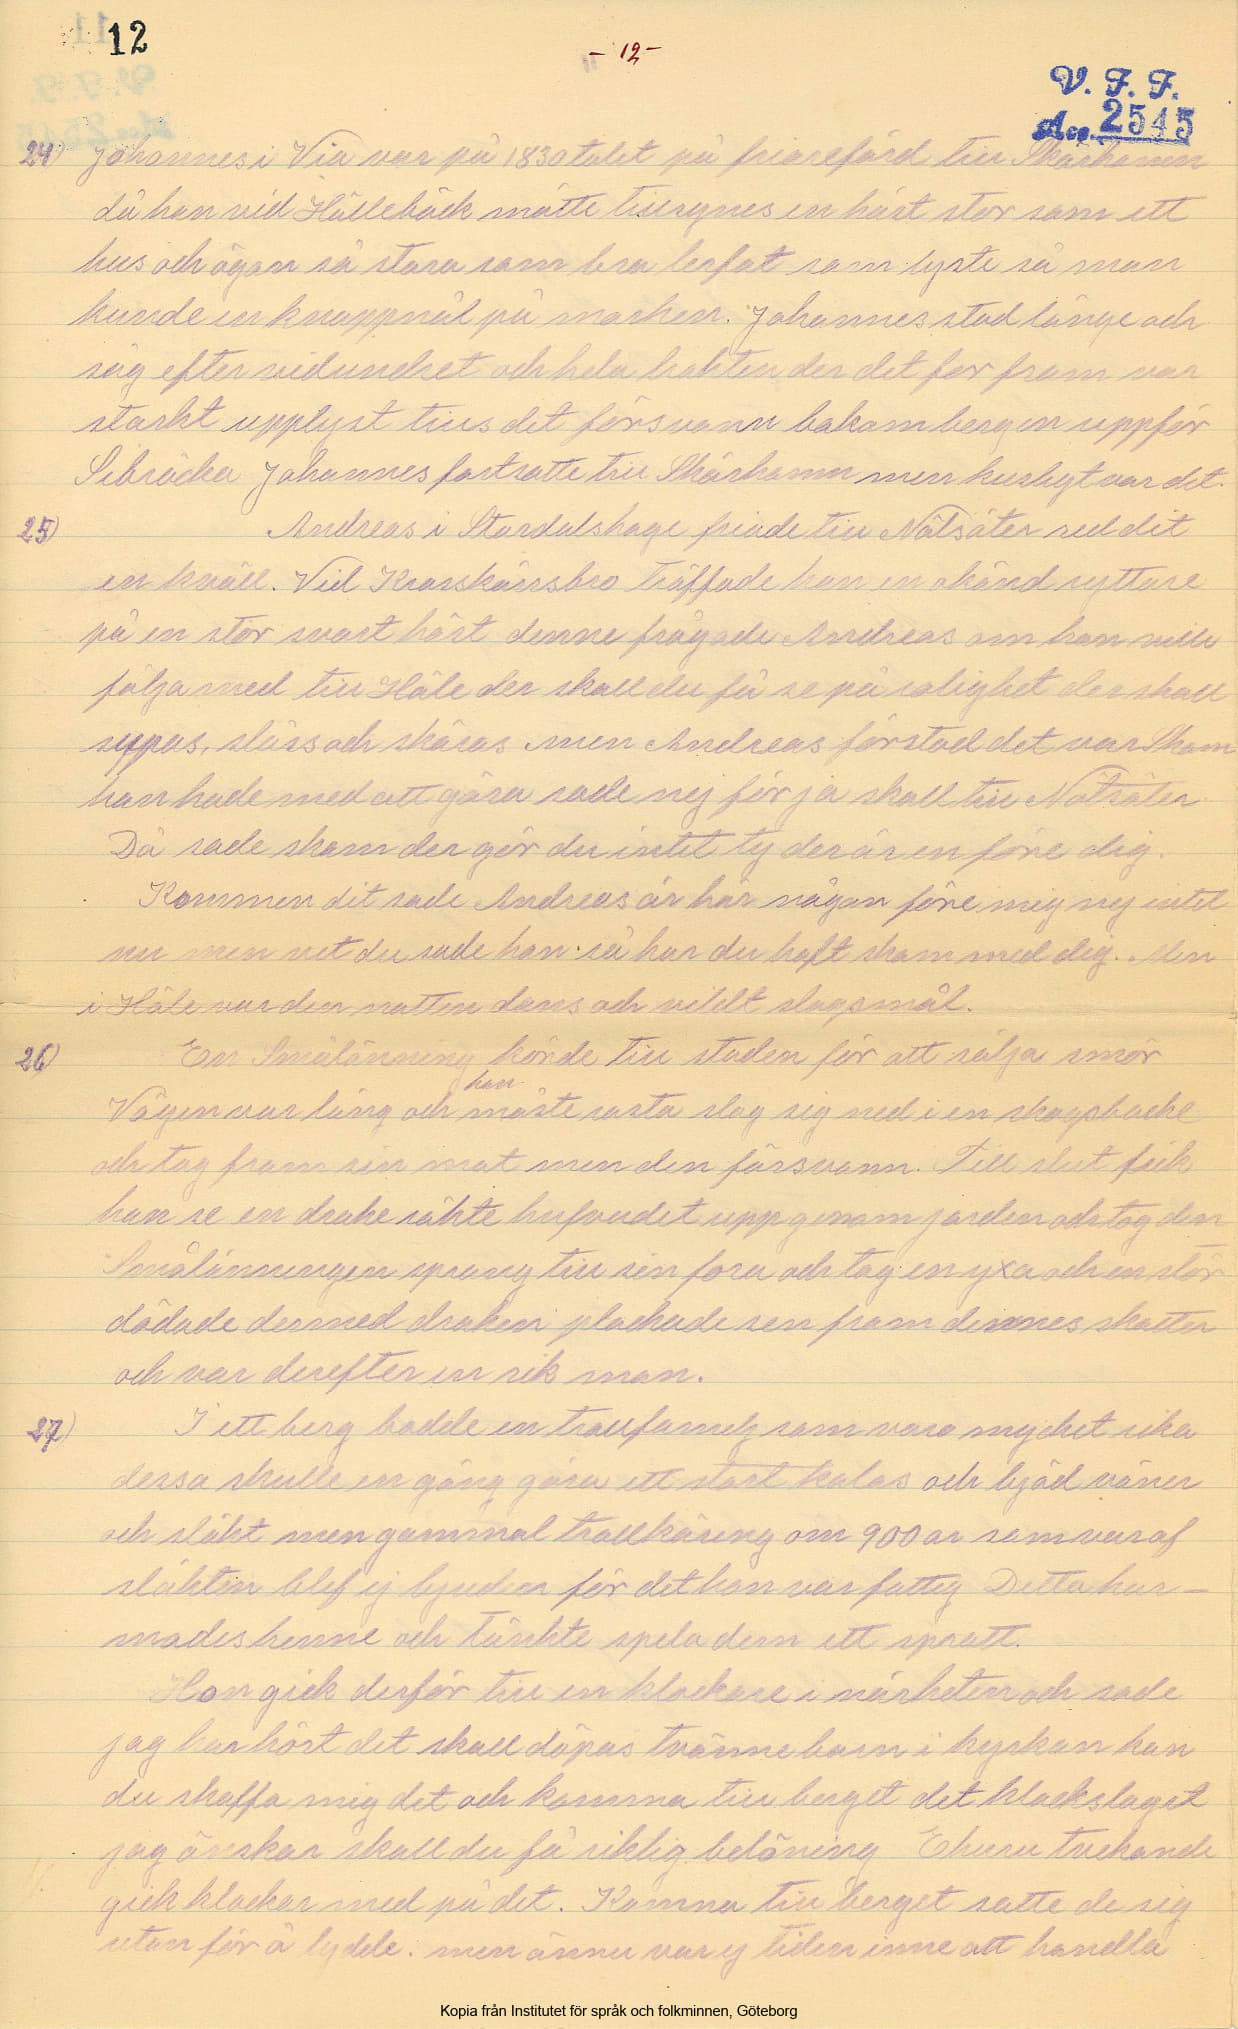 12
- 12 -
V. F. F.
Acc. 2545
24) Johannes i Via var på 1830 talet på friarefärd till Skärhamn
då han vid Hällebäck mötte tillsynes en häst stor som ett
hus och ögon så stora som bra lerfat som lyste så man
kunde en knappnål på marken. Johannes stod länge och
såg efter vidundret och hela trakten der det for fram var
starkt upplyst tills det försvann bakom bergen uppför
Sibräcka Johannes fortsatte till Skärhamn men kusligt var det.
25) Andreas i Stordalshage friade till Nötsäter red dit
en kväll. Vid Krarskärrsbro träffade han en okänd ryttare
på en stor svart häst denne frågade Andreas om han ville
följa med till Häle der skall du få se på rolighet der skall
supas, slåss och skäras men Andreas förstod det var Skam
han hade med att göra sade nej för ja skall till Nötsäter
Då sade skam der gör du intet ty der är en före dig.
Kommen dit sade Andreas är här någon före mig nej intet
nu men vet du sade hon så har du haft skam med dig. Men
i Häle var den natten dans och vildt slagsmål.
26) En Smålänning körde till staden för att sälja smör
Vägen var lång och han måste rasta slog sig ned i en skogsbacke
och tog fram sin mat men den försvann. Till slut fick
han se en drake säkte hufvudet upp genom jorden och tog den
Smålänningen sprang till sin fora och tog en yxa och en stör
dödade dermed draken plockade sen fram dennes skatter
och var derefter en rik man.
27) I ett berg bodde en trollfamelj som voro mycket rika
dessa skulle en gång göra ett stort kalas och bjöd vänner
och släkt men gammal trollkäring om 900 år som var af
släkten blef ej bjuden för det hon var fattig Detta har-
mades henne och tänkte spela dem ett spratt.
Hon gick derför till en klockare i närheten och sade
jag har hört det skall döpas tvänne barn i kyrkan kan
du skaffa mig det och komma till berget det klockslaget
jag önskar skall du få riklig belöning Ehuru tvekande
gick klockar med på det. Komna till berget satte de sig
utan för å lydde. men ännu var ej tiden inne att handla
Kopia från Institutet för språk och folkminnen, Göteborg